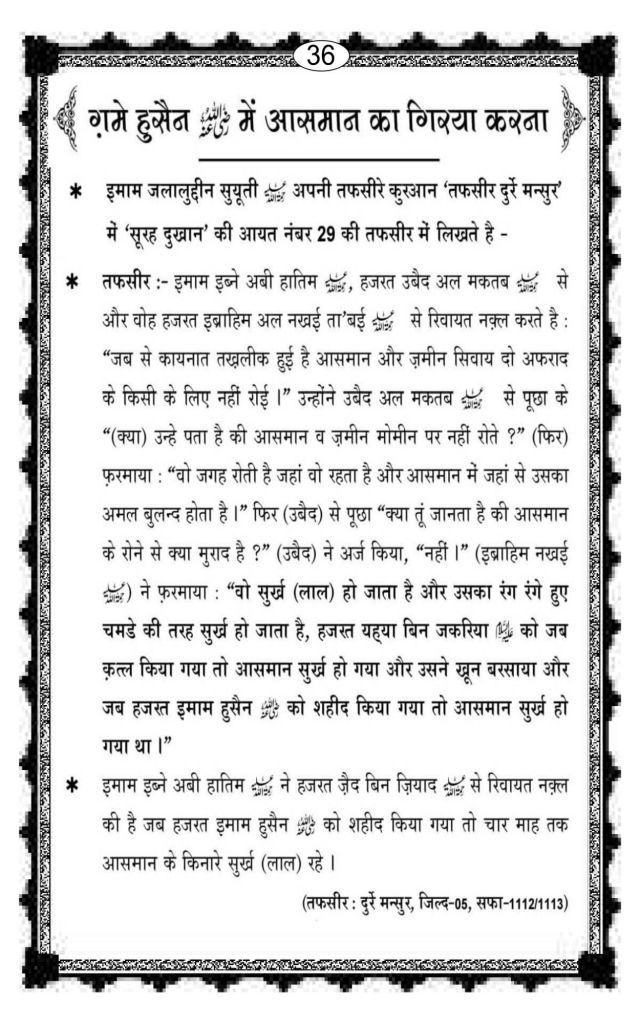 36
ग़मे हुसैन ﷜ में आसमान का गिरया करना
* इमाम जलालुद्दीन सुयूती अपनी तफसीरे कुरआन ‘तफसीर दुर्रे मन्सुर’
में ‘सूरह दुखान’ की आयत नंबर 29 की तफसीर में लिखते है -
* तफसीर :- इमाम इब्ने अबी हातिम , हजरत उबैद अल मकतब से
और वोह हजरत इब्राहिम अल नखई ता’बई से रिवायत नक़्ल करते है :
“जब से कायनात तख़लीक हुई है आसमान और ज़मीन सिवाय दो अफराद
के किसी के लिए नहीं रोई ।” उन्होंने उबैद अल मकतब से पूछा के
“(क्या) उन्हे पता है की आसमान व ज़मीन मोमीन पर नहीं रोते ?” (फिर)
फ़रमाया : “वो जगह रोती है जहां वो रहता है और आसमान में जहां से उसका
अमल बुलन्द होता है ।” फिर (उबैद) से पूछा “क्या तूं जानता है की आसमान
के रोने से क्या मुराद है ?” (उबैद) ने अर्ज किया, “नहीं ।” (इब्राहिम नखई
) ने फ़रमाया : “वो सुर्ख (लाल) हो जाता है और उसका रंग रंगे हुए
चमडे की तरह सुर्ख हो जाता है, हजरत यह्या बिन जकरिया को जब
क़त्ल किया गया तो आसमान सुर्ख हो गया और उसने ख़ून बरसाया और
जब हजरत इमाम हुसैन को शहीद किया गया तो आसमान सुर्ख हो
गया था ।”
* इमाम इब्ने अबी हातिम ने हजरत ज़ैद बिन ज़ियाद से रिवायत नक़्ल
की है जब हजरत इमाम हुसैन को शहीद किया गया तो चार माह तक
आसमान के किनारे सुर्ख (लाल) रहे ।
(तफसीर : दुर्रे मन्सुर, जिल्द-05, सफा-1112/1113)